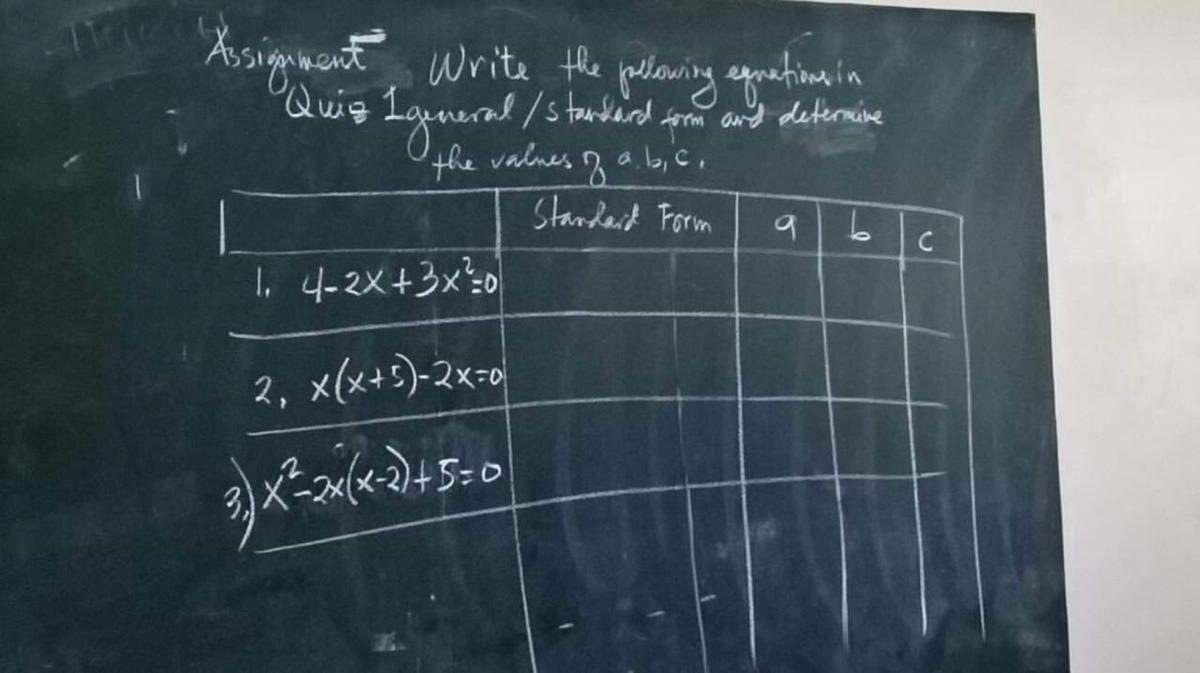 Assignment Write the following equations in
Quiz 1 general / standard form and determine
the values of a, b, c.
Standard Form a b c
1. 4-2x+3x²=0
2. x(x+5)-2x=0
3.) x²-2x(x-2)+5=0